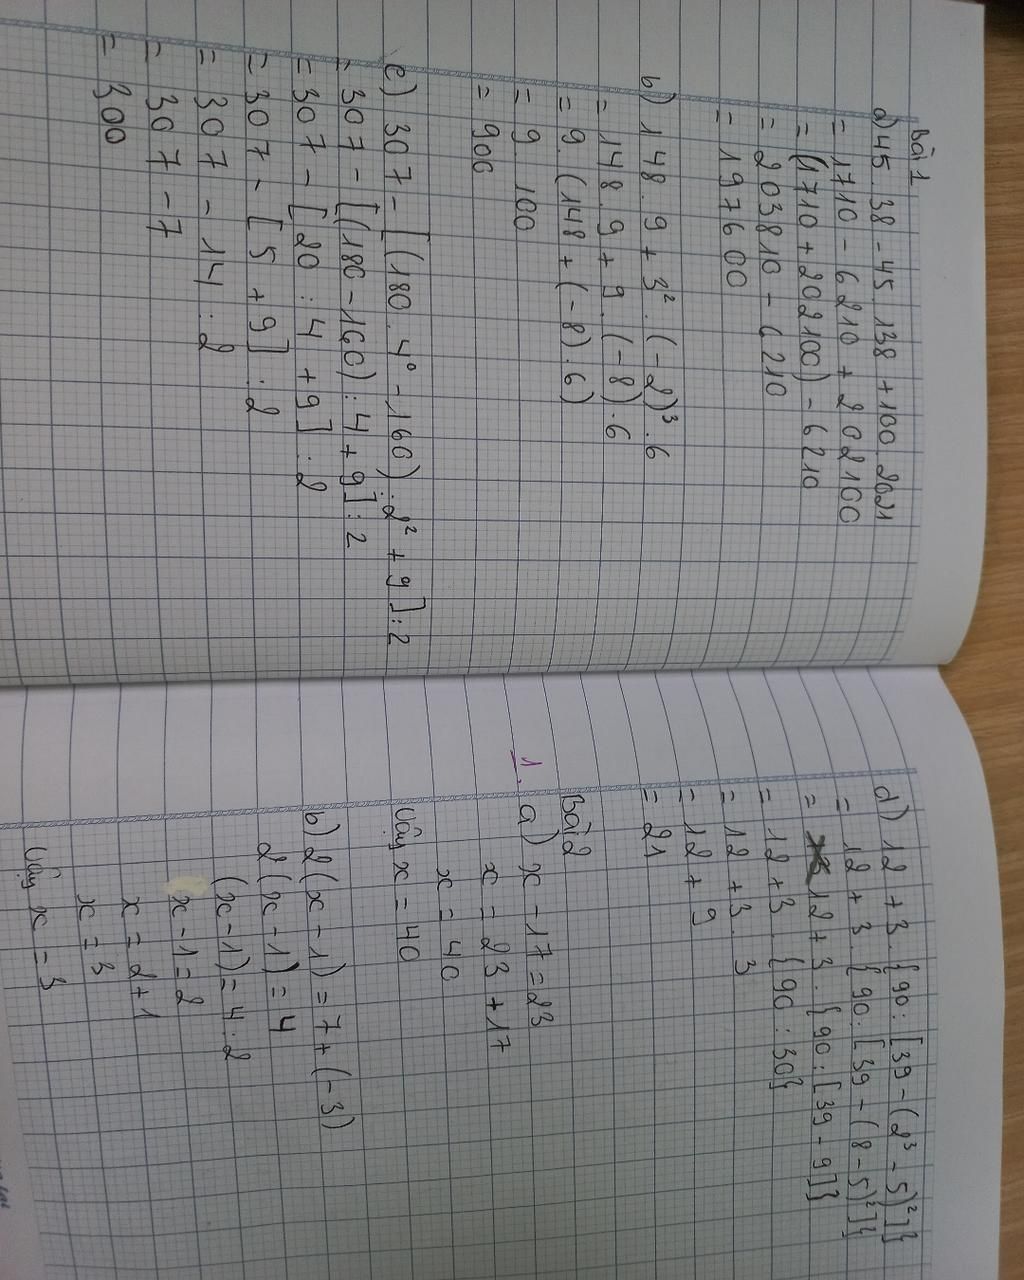 Bài 1
a) 45 . 38 - 45 . 138 + 100 . 2021
= 1710 - 6210 + 202100
= (1710 + 202100) - 6210
= 203810 - 6210
= 197600
b) 148 . 9 + 3² . (-2)³ . 6
= 148 . 9 + 9 . (-8) . 6
= 9 . (148 + (-8) . 6)
= 9 . 100
= 900
c) 307 - [(180 . 4⁰ - 160) : 2² + 9] : 2
= 307 - [(180 - 160) : 4 + 9] : 2
= 307 - [20 : 4 + 9] : 2
= 307 - [5 + 9] : 2
= 307 - 14 : 2
= 307 - 7
= 300
d) 12 + 3 . {90 : [39 - (2³ - 5)²]}
= 12 + 3 . {90 : [39 - (8 - 5)²]}
= 12 + 3 . {90 : [39 - 9]}
= 12 + 3 . {90 : 30}
= 12 + 3 . 3
= 12 + 9
= 21
Bài 2
1.
a) x - 17 = 23
x = 23 + 17
x = 40
Vậy x = 40
b) 2(x - 1) = 7 + (-3)
2(x - 1) = 4
(x - 1) = 4 : 2
x - 1 = 2
x = 2 + 1
x = 3
Vậy x = 3